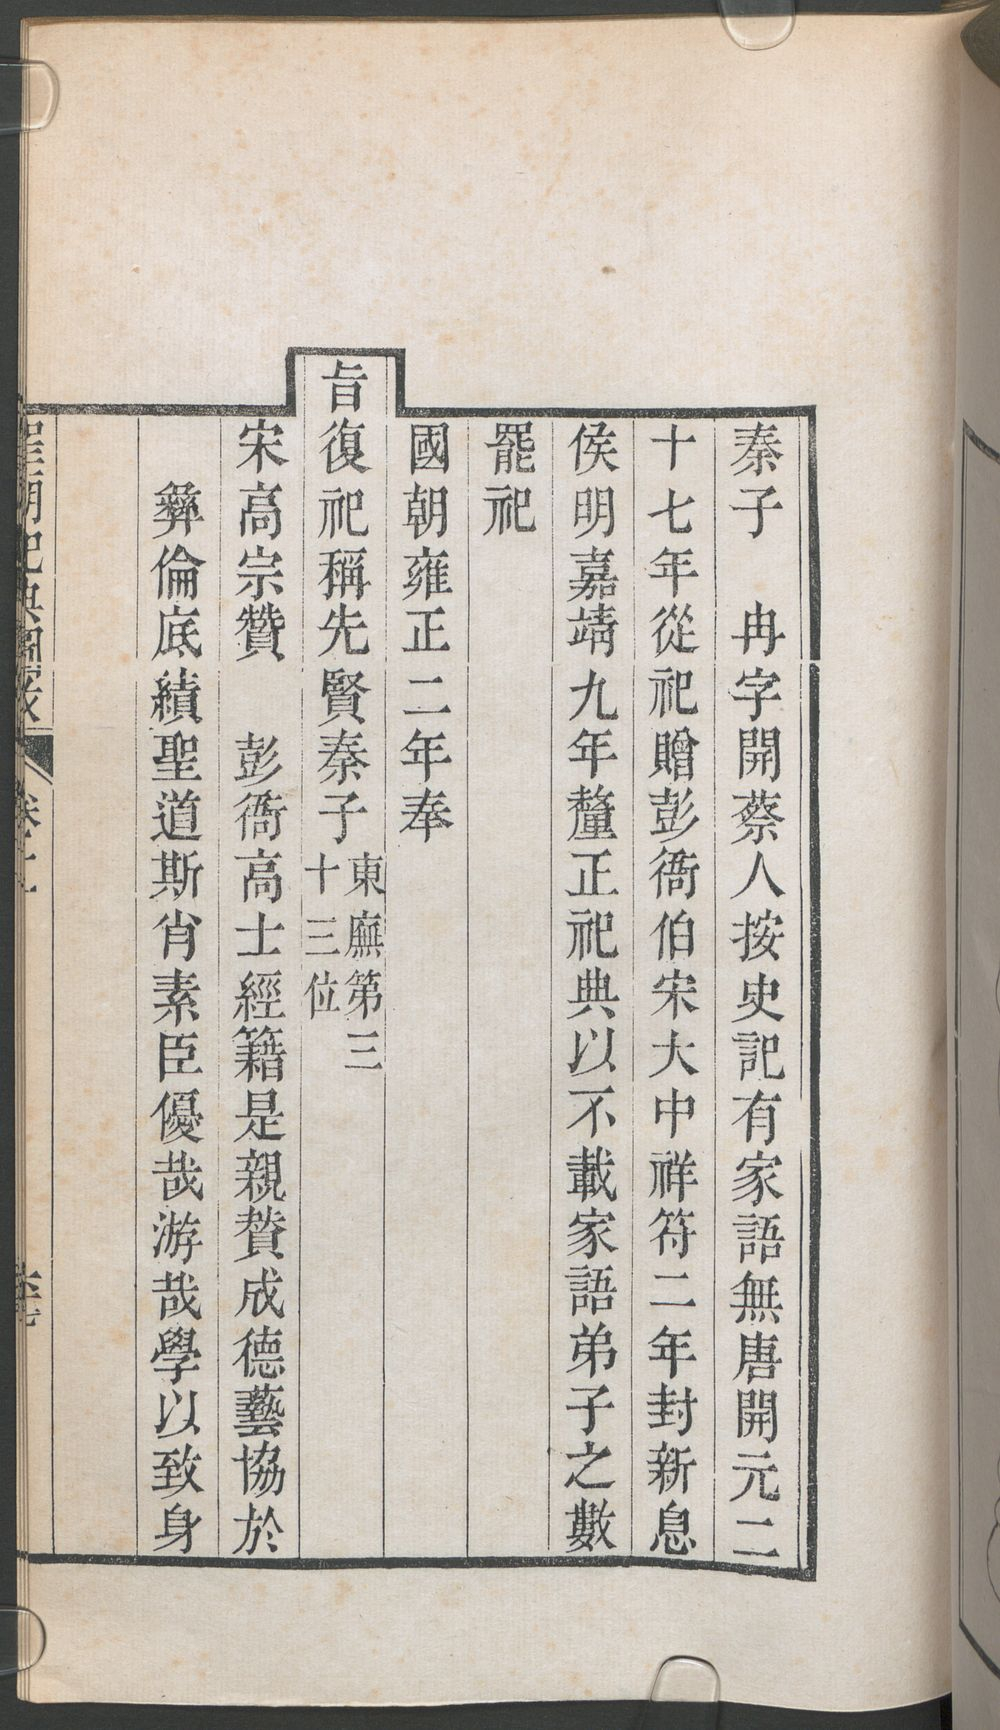 秦子　冉字開蔡人按史記有家語無唐開元二
十七年從祀贈彭衙伯宋大中祥符二年封新息
侯明嘉靖九年釐正祀典以不載家語弟子之數
罷祀
國朝雍正二年奉
旨復祀稱先賢秦子東廡第三十三位
宋高宗贊　彭衙高士經籍是親賛成德藝協於
彝倫底績聖道斯肖素臣優哉游哉學以致身